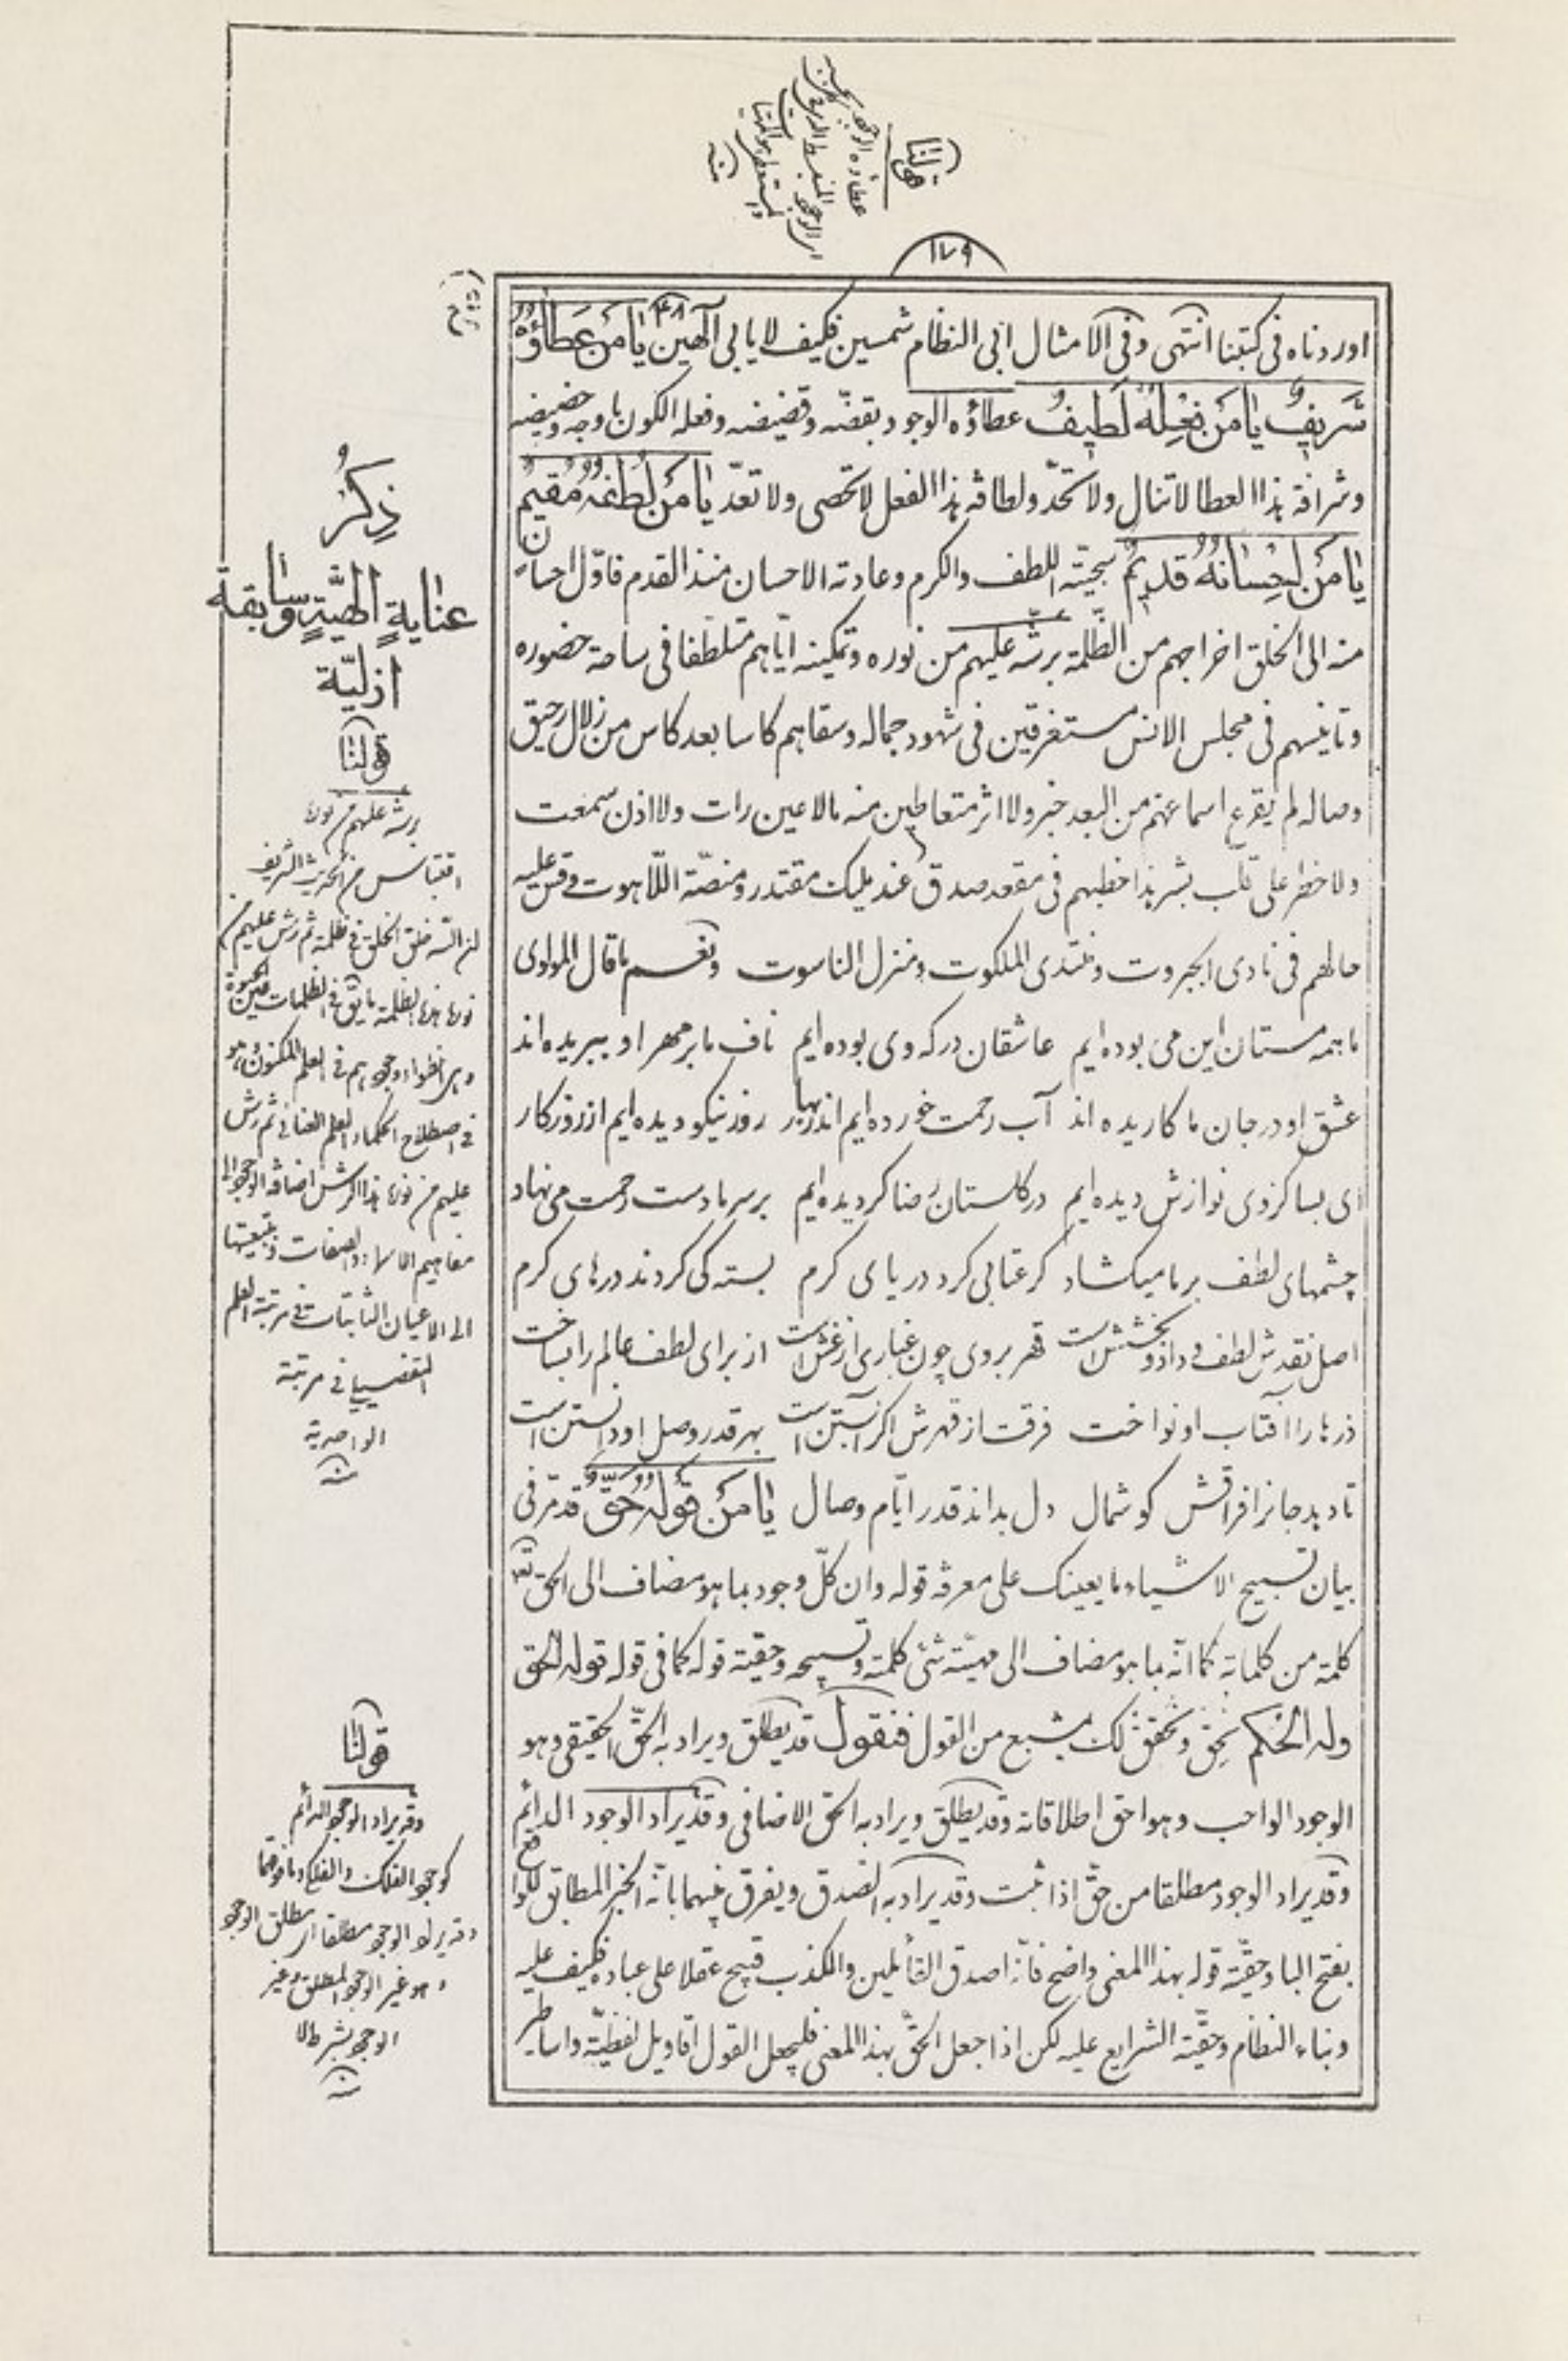 قولنا
عطاؤه الوجود
۱۷۹
اوردناه فى كتبنا انتهى وفى الامثال ابى النظام شمسين فكيف لا يابى آلهين يا من عطاؤه
شريف يا من فعله لطيف عطاؤه الوجود بقضّه وقضيضه وفعله الكون باوجه وحضيضه
وشرافة هذا العطا لا تنال ولا تحدّ ولطافة هذا الفعل لا تحصى ولا تعدّ يا من لطفه مقيم
يا من احسانه قديم سجيّته اللطف والكرم وعادته الاحسان منذ القدم فاوّل احسان
منه الى الخلق اخراجهم من الظلمة برشّه عليهم من نوره وتمكينه ايّاهم متلطفا فى ساحة حضوره
وتانيسهم فى مجلس الانس مستغرقين فى شهود جماله وسقاهم كاسا بعد كاس من زلال رحيق
وصاله لم يقرع اسماعهم من البعد خبر ولا اثر متعاطين منه مالا عين رات ولا اذن سمعت
ولا خطر على قلب بشر هذا خطبهم فى مقعد صدق عند مليك مقتدر ومنصّة اللّاهوت وقس عليه
حالهم فى نادى الجبروت ومنتدى الملكوت ومنزل الناسوت ونعم ما قال المولوى
ما همه مستان اين مى بوده ايم عاشقان دركه وى بوده ايم ناف ما بر مهر او ببريده اند
عشق او در جان ما كاريده اند آب رحمت خورده ايم اندر بهار روز نيكو ديده ايم از روزكار
اى بسا كز وى نوازش ديده ايم در كلستان رضا كرديده ايم بر سر ما دست رحمت مى نهاد
چشمهاى لطف بر ما ميكشاد كر عتابى كرد درياى كرم بسته كى كردند درهاى كرم
اصل نقدش لطف و داد و بخشش است قهر بر وى چون غبارى از غش است از براى لطف عالم را بساخت
ذرها را آفتاب او نواخت فرقت از قهرش اكر آبستن است بهر قدر وصل او دانستن است
تا دهد جانرا فراقش كوشمال دل بداند قدر ايّام وصال يا من قوله حقّ قد مرّ فى
بيان تسبيح الاشياء ما يعينك على معرفة قوله وان كلّ وجود بما هو مضاف الى الحق تع
كلمة من كلماته كما انّه بما هو مضاف الى مهيّته شئ كلمته وتسبيحه وحقيّة قوله كما فى قوله قوله الحق
وله الحكم تحق وتحقق لك بمشبع من القول فنقول قد يطلق ويراد به الحقّ الحقيقى وهو
الوجود الواجب وهو احق اطلاقاته وقد يطلق ويراد به الحق الاضافى وقد يراد الوجود الدائم
وقد يراد الوجود مطلقا من حقّ اذا ثبت وقد يراد به الصدق ويفرق بينهما بانّه الخبر المطابق للواقع
بفتح البا وحقيّة قوله بهذا المعنى واضح فانّه اصدق القائلين والكذب قبيح عقلا على عباده فكيف عليه
وبناء النظام وحقيّة الشرايع عليه لكن اذا جعل الحقّ بهذا المعنى فليجعل القول اقاويل لفظيّة واساطير
ذكر
عناية الهيّة وسابقة
ازليّة
قولنا
برشه عليهم من نوره
اقتباس من الحديث الشريف
ان الله خلق الخلق فى ظلمة ثم رش عليهم من
فى اصطلاح الحكماء العلم العنائى ثم رش
عليهم من نوره هذا الرش اضافة الوجود الى
مفاهيم الاسماء والصفات وبتبعيتها
الى الاعيان الثابتات فى مرتبة العلم
التفصيلى فى مرتبة
الواحدية
منه
قولنا
وقد يراد الوجود الدائم
كوجود الفلك والفلكى وما فوقهما
وقد يراد الوجود مطلقا اى مطلق الوجود
وهو غير الوجود المطلق وغير
الوجود بشرط لا
منه